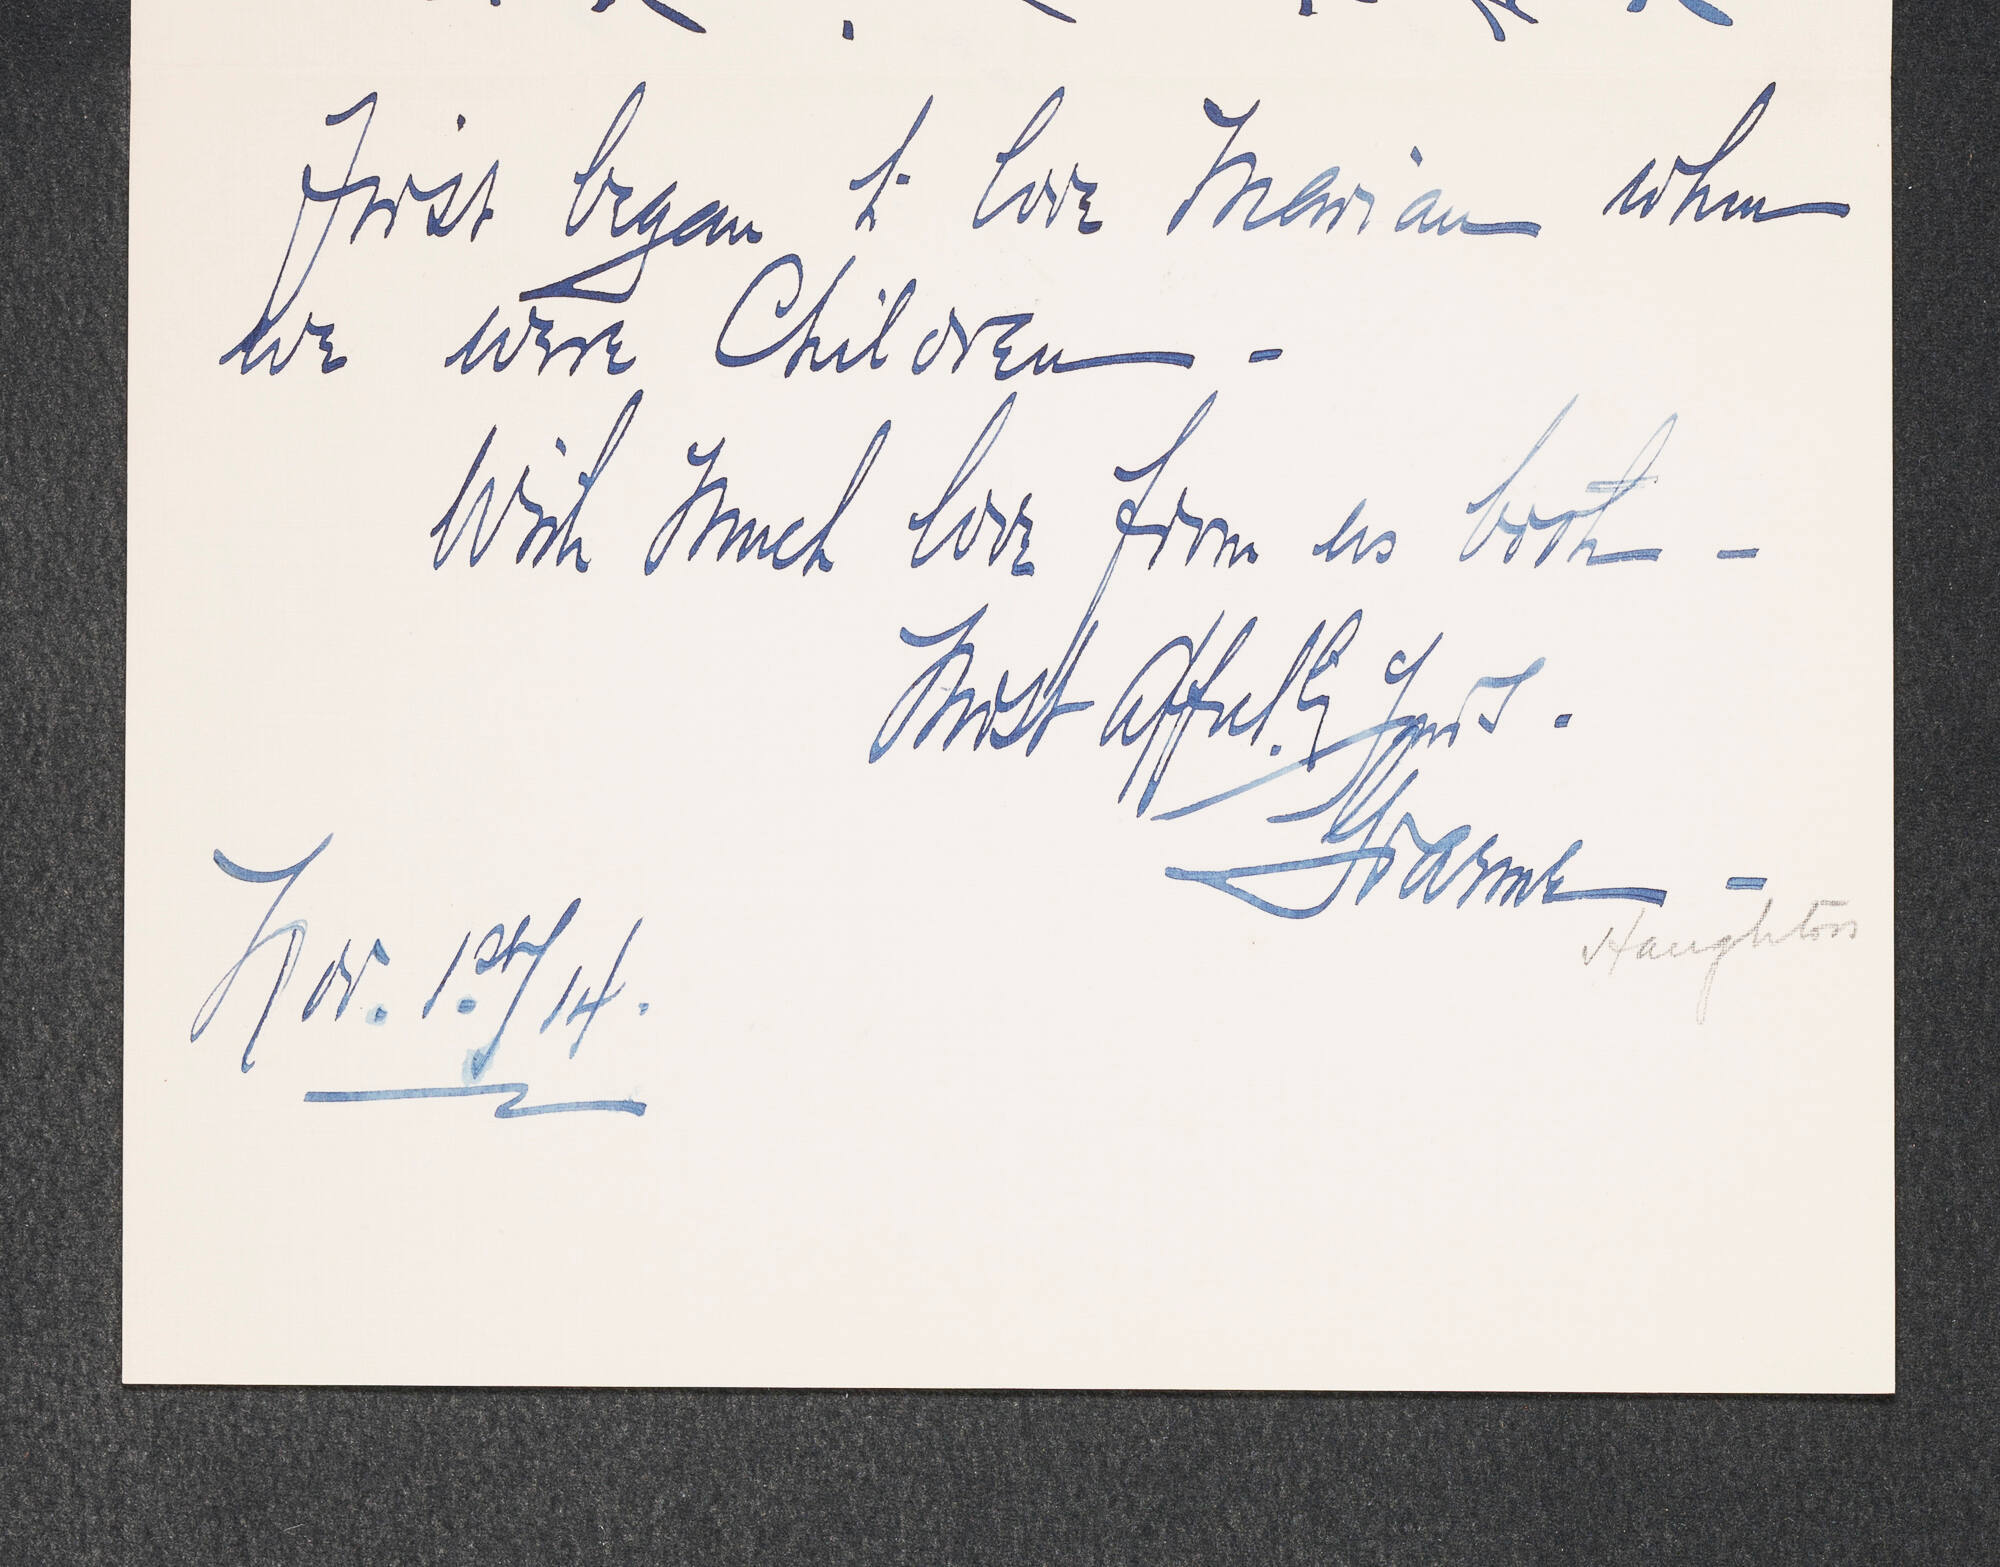 first began to love Marian when
we were Children -
With Much love from us both -
Most Affn.ly Yours.
Graeme -
Haughton
Nov. 1st/14.